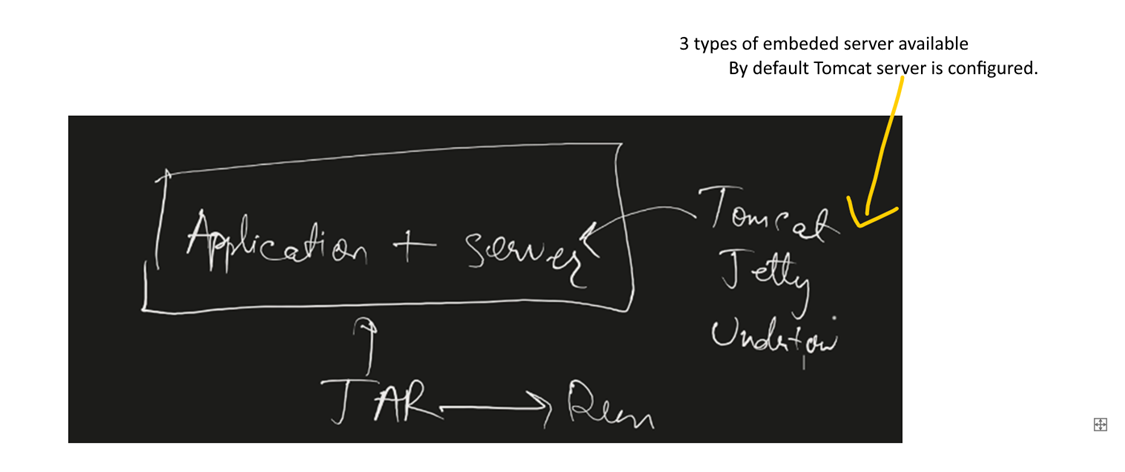 3 types of embeded server available
By default Tomcat server is configured.
Application + server
Tomcat
Jetty
Undertow
JAR
Run